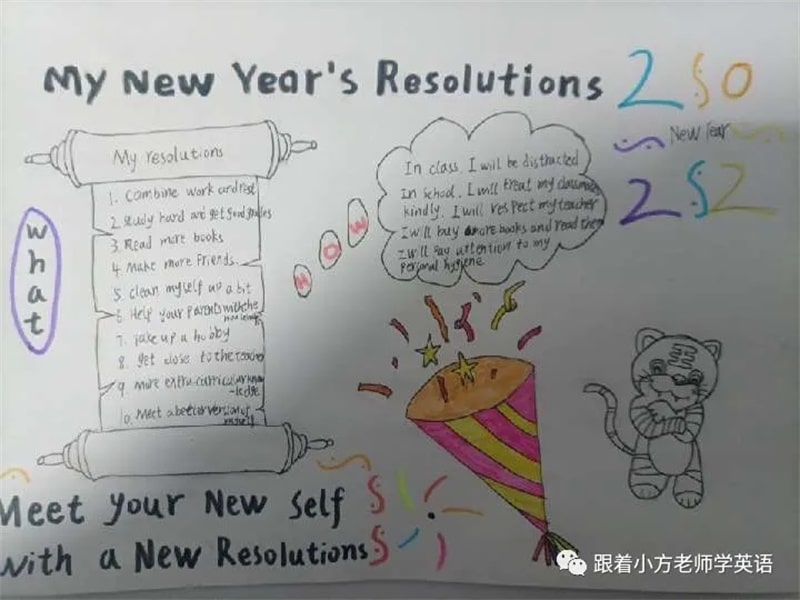 My New Year's Resolutions
2
0
New Year
2
2
what
My resolutions
1. Combine work and rest
2. Study hard and get good grades
3. Read more books
4. Make more Friends.
5. clean myself up a bit
6. Help your parents with the
7. Take up a hobby
8. get close to the teacher
9. more extra-curricular know
-ledge
10. Meet a better version of
myself
HOW
In class. I will be distracted
In school. I will treat my classmates
kindly. I will respect my teacher
I will buy more books and read them
I will pay attention to my
personal hygiene
Meet your New Self
with a New Resolutions
跟着小方老师学英语